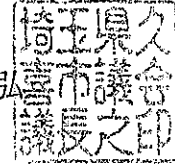 弘
埼玉県久
喜市議会
議長之印